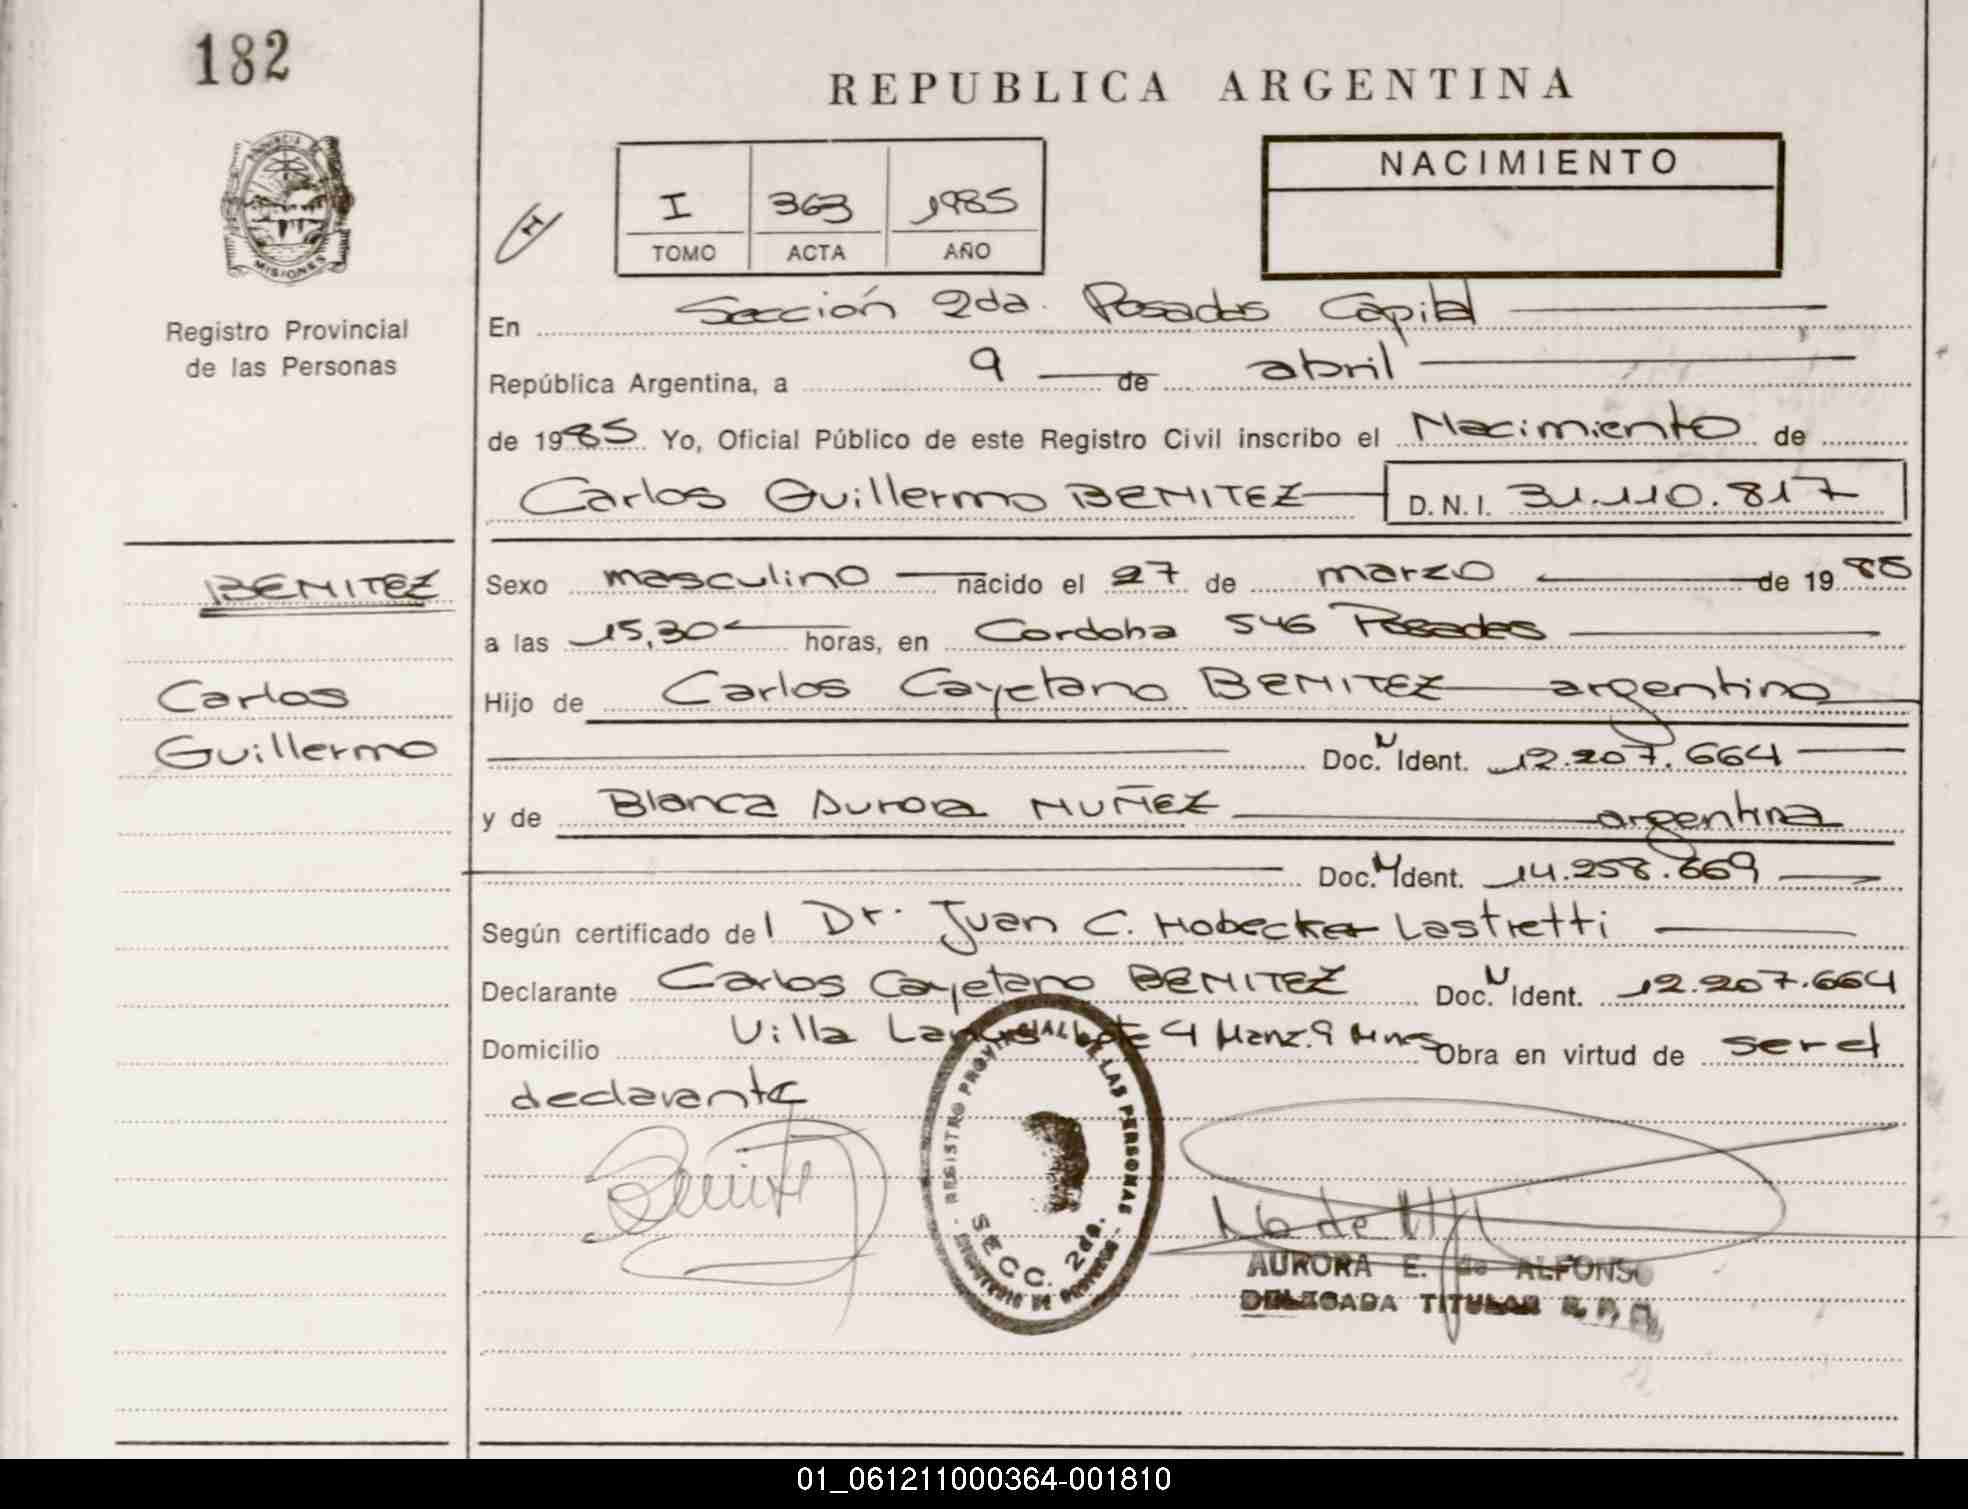 182
REPUBLICA ARGENTINA
PROVINCIA DE
MISIONES
Registro Provincial
de las Personas
I 363 1985
TOMO ACTA AÑO
NACIMIENTO
En Sección 2da. Posadas Capital
República Argentina, a 9 de abril
de 1985 Yo, Oficial Público de este Registro Civil inscribo el Nacimiento de
Carlos Guillermo BENITEZ D.N.I. 31.110.817
BENITEZ
Carlos
Guillermo
Sexo masculino nacido el 27 de marzo de 1985
a las 15,30 horas, en Cordoba 546 Posadas
Hijo de Carlos Cayetano BENITEZ argentino
Doc. N Ident. 12.207.664
y de Blanca Aurora NUÑEZ argentina
Doc. N Ident. 14.258.669
Según certificado del Dr. Juan C. Hobecker Lastretti
Declarante Carlos Cayetano BENITEZ Doc. N Ident. 12.207.664
Domicilio Villa Lanus Lote 4 Manz. 9 Mnes Obra en virtud de ser el
declarante
REGISTRO PROVINCIAL DE LAS PERSONAS
SECC. 2da.
AURORA E. de ALFONSO
DELEGADA TITULAR R.P.P.
01_061211000364-001810